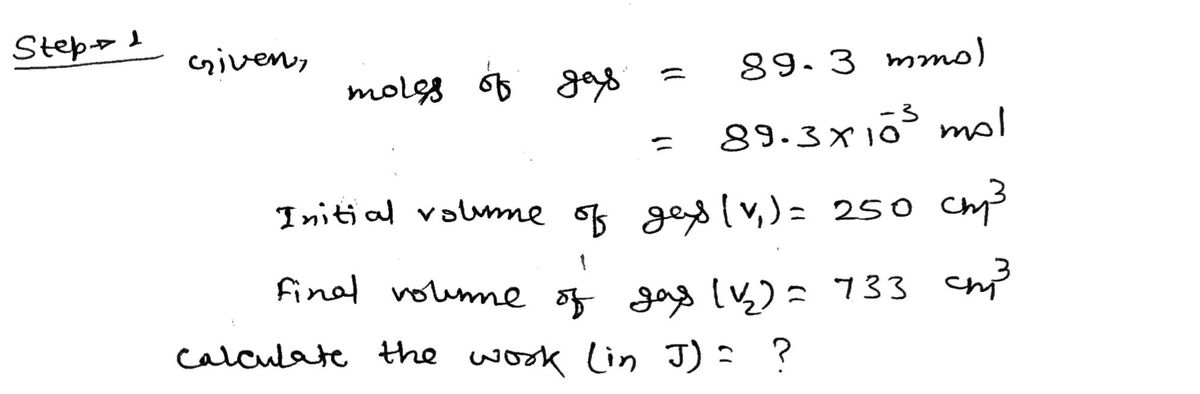 Step→1 Given,
moles of gas = 89.3 mmol
= 89.3×10⁻³ mol
Initial volume of gas (V₁) = 250 cm³
Final volume of gas (V₂) = 733 cm³
Calculate the work (in J) = ?